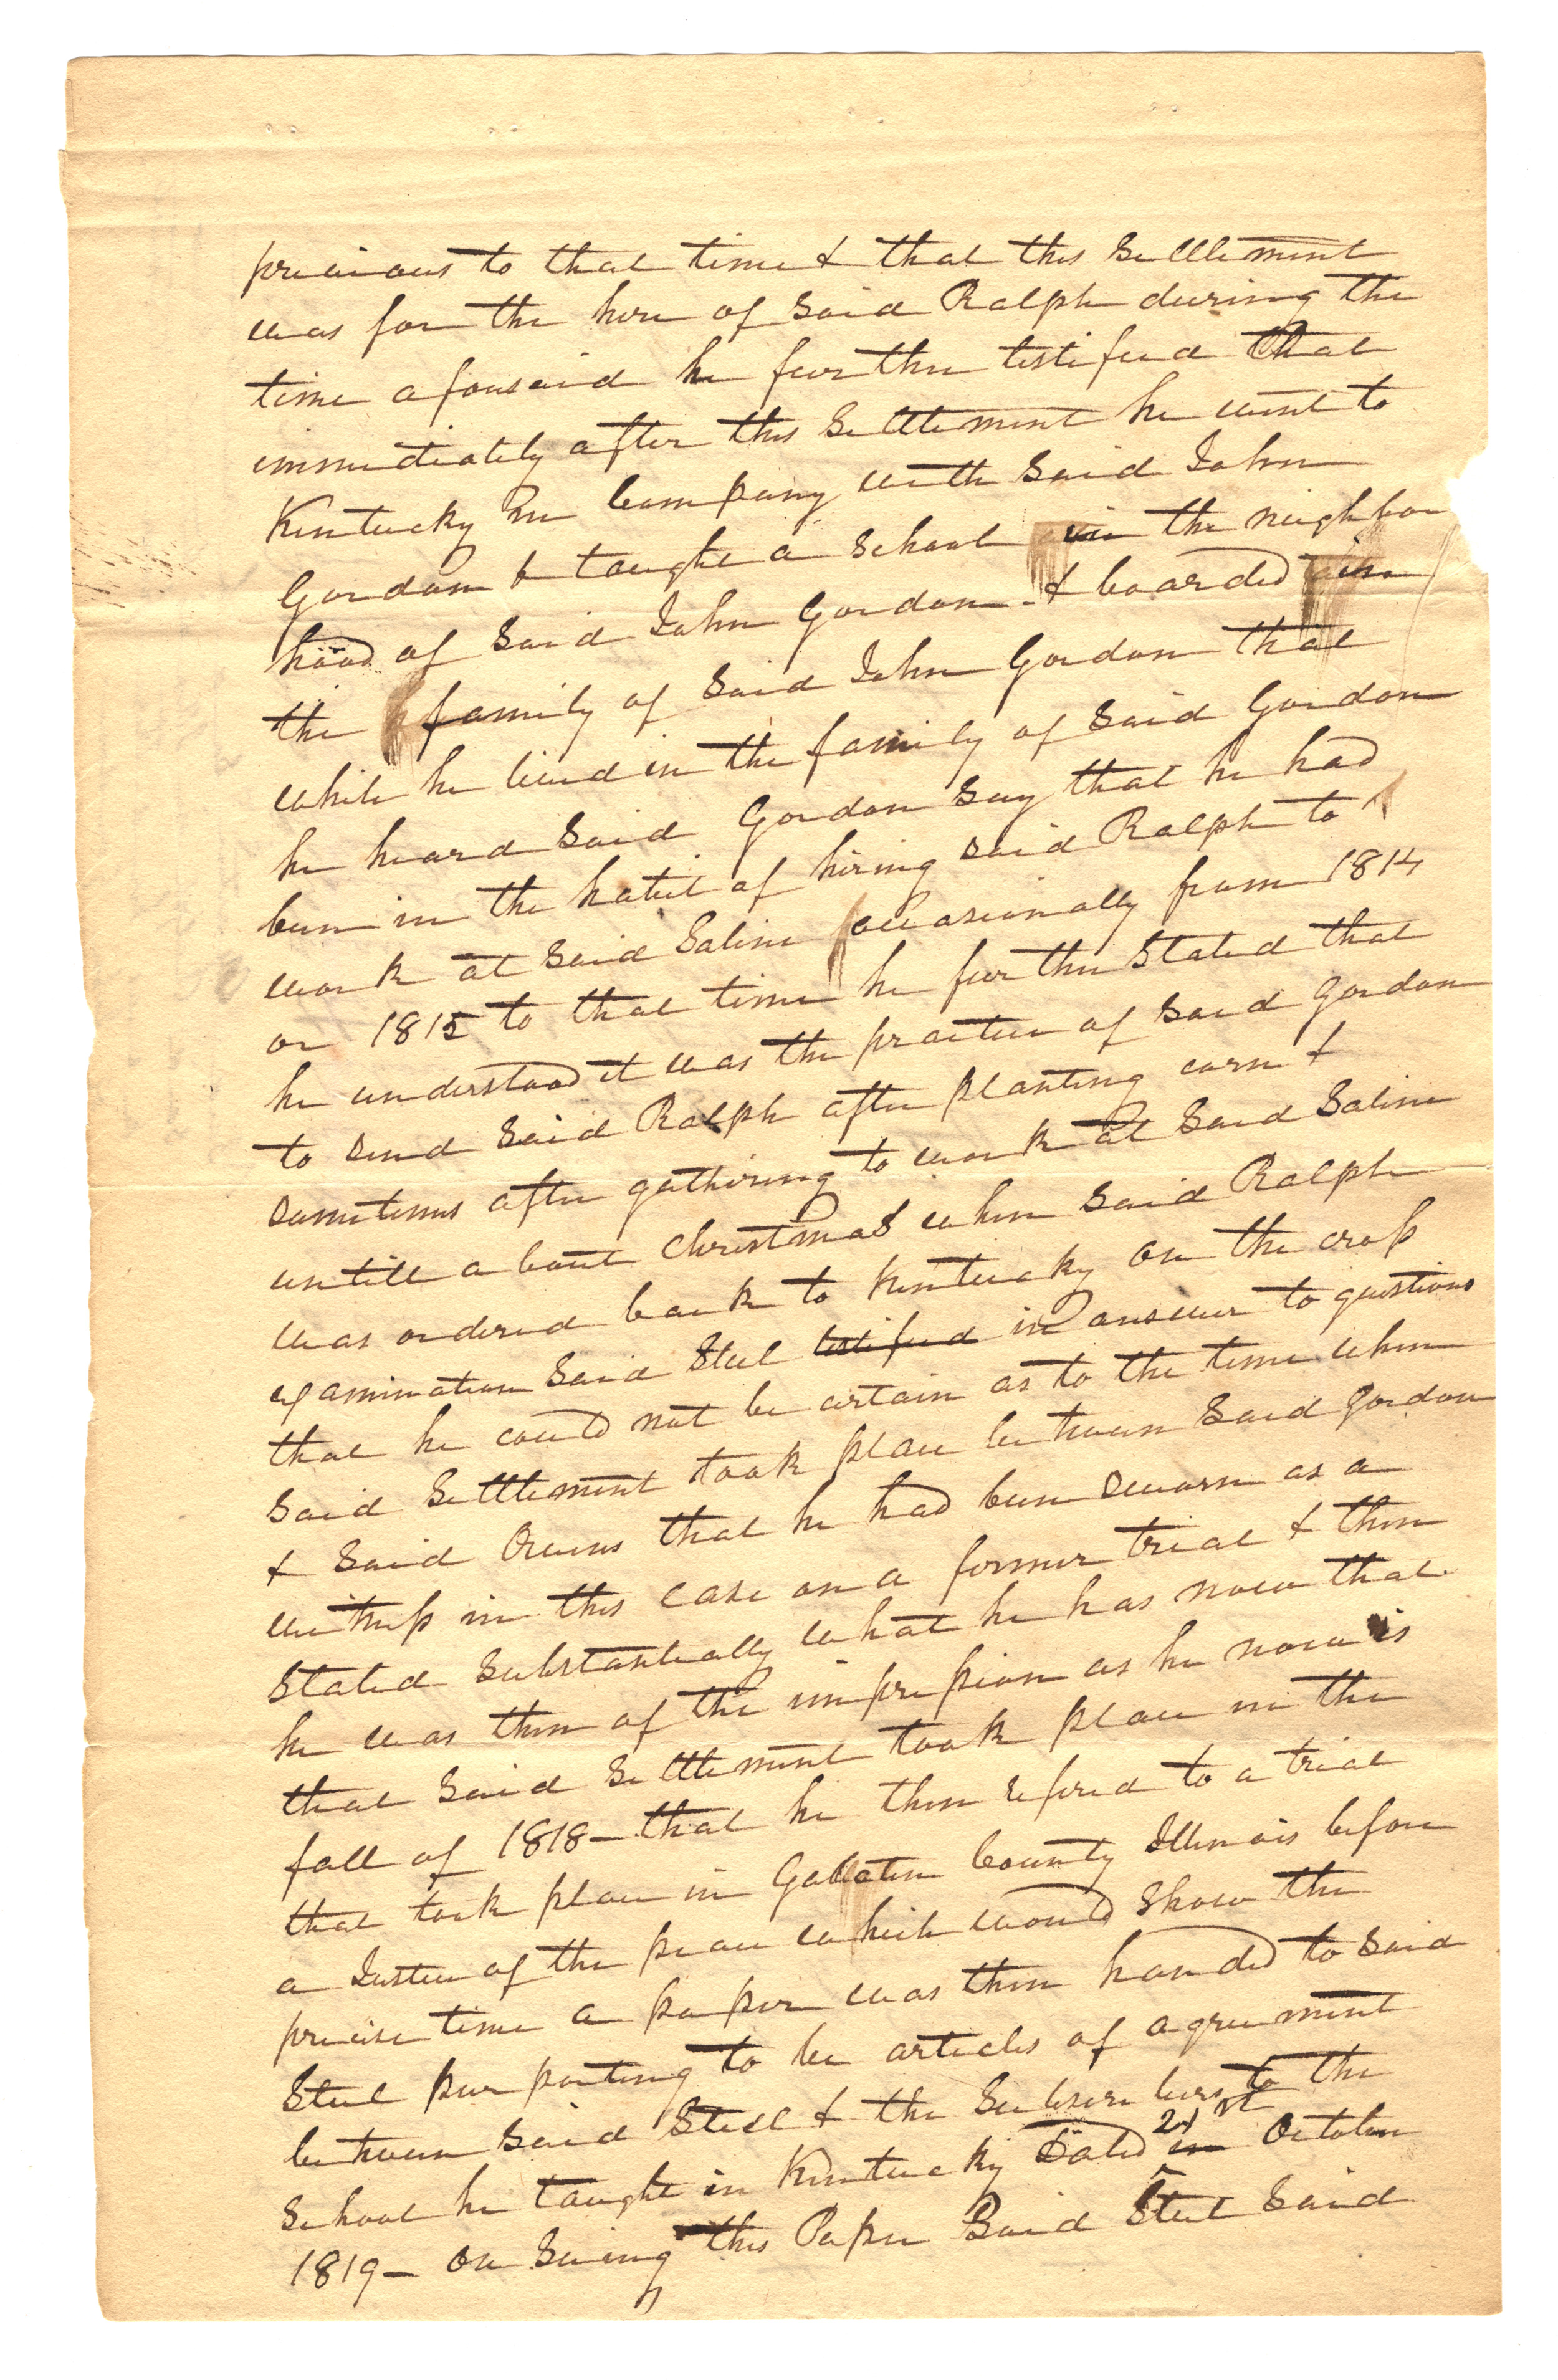 previous to that time & that this Settlement
was for the hire of Said Ralph during the
time aforesaid he further testified that
immediately after this Settlement he went to
Kentucky in Company with Said John
Gordon & taught a School in the neighbor
hood of Said John Gordon & boarded in
the family of Said John Gordon that
while he lived in the family of Said Gordon
he heard Said Gordon Say that he had
been in the habit of hiring Said Ralph to
work at Said Saline occasionally from 1814
or 1815 to that time he further Stated that
he understood it was the practice of Said Gordon
to Send Said Ralph after planting corn &
Sometimes after gathering to work at Said Saline
untill about Christmas when Said Ralph
was ordered back to Kentucky On the cross
examination Said Steel testified in answer to questions
that he could not be certain as to the time when
Said Settlement took place between Said Gordon
& Said Owens that he had been Sworn as a
witness in this case on a former trial & then
Stated Substantially what he has now that
he was then of the impression as he now is
that Said Settlement took place in the
fall of 1818 – that he then refered to a trial
that took place in Gallatin County Illinois before
a Justice of the peace which would Show the
precise time a paper was then handed to Said
Steel purporting to be articles of agreement
between Said Steel & the Subscribers to the
School he taught in Kentucky Dated in 21st October
1819 – On Seeing this Paper Said Steel Said